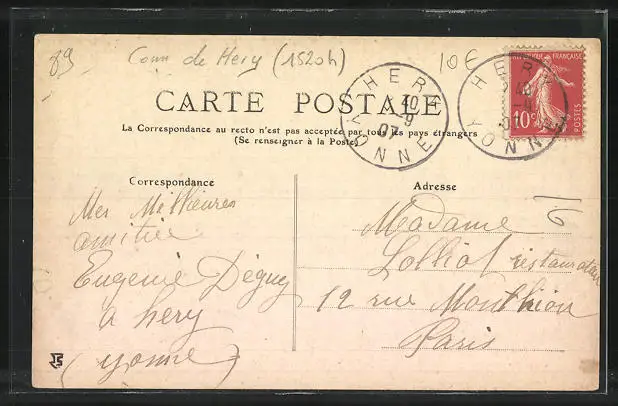 89 Com de Hery (1520h) 10€
CARTE POSTALE
La Correspondance au recto n'est pas acceptée par tous les pays étrangers
(Se renseigner à la Poste)
HERY
10
9
07
YONNE
HERY
YONNE
RÉPUBLIQUE FRANÇAISE
10c
POSTES
Correspondance
Mes Meilleures
amitiée
Eugenie Déguy
a hery
(yonne)
Adresse
Madame
Lolliot restaurateur
12 rue Monthion
Paris